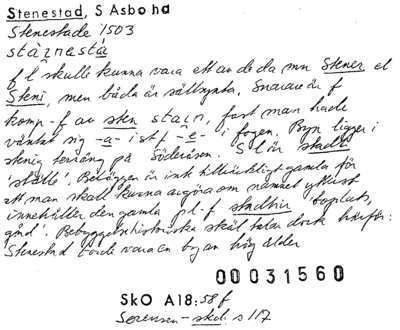 Stenestad, S Åsbo hd
Stenestade 1503
stàɪnestá
f l skulle kunna vara ett av de da mn Stener el
Steni, men båda är sällsynta. Snarare är f
komp-f av sten stain, fast man hade
väntat sig -a- i st f -e- i fogen. Byn ligger i
stenig terräng på Söderåsen. S l är stadh
'ställe'. Beläggen är ink tillräckligt gamla för
att man skall kunna avgöra om namnet ytterst
innehåller den gamla pl-f stadhir 'boplats,
gård'. Bebyggelsehistoriska skäl talar dock härför:
Stenestad borde vara en by av hög ålder
00031560
SkO A18:58 f
Sørensen -sted. s 117